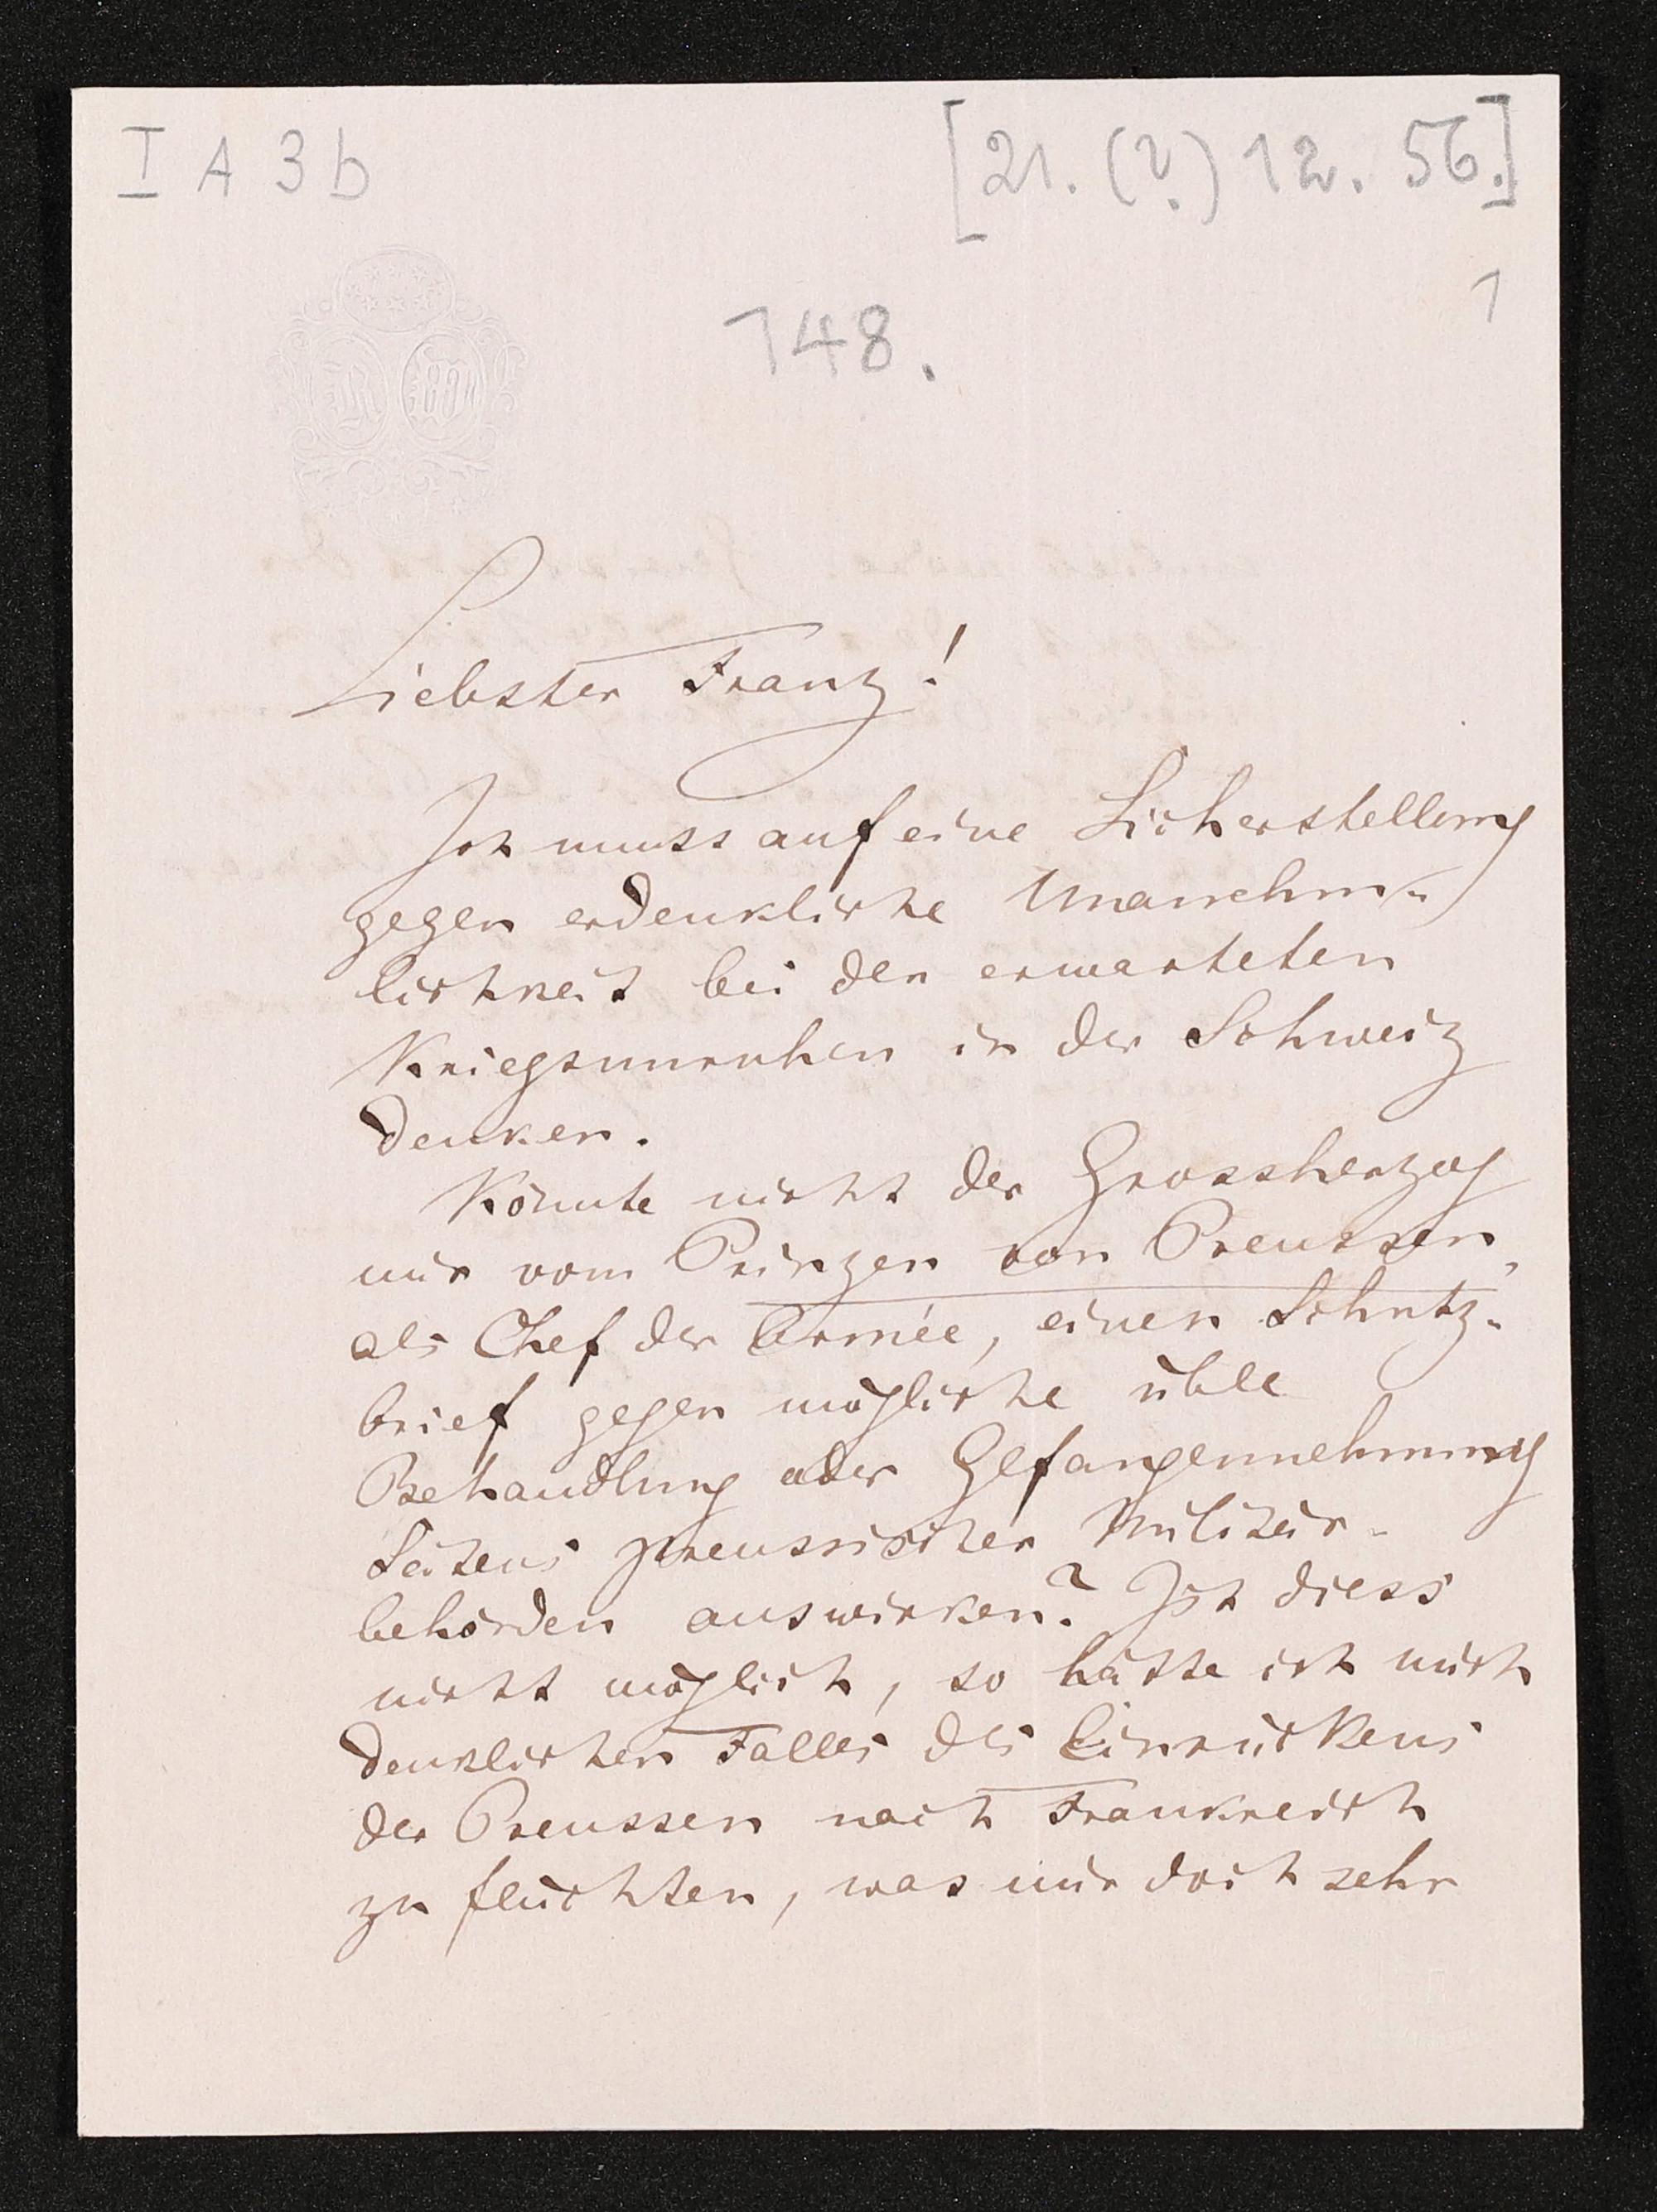 I A 3 b
[21. (?) 12. 56.]
1
148.
R W
Liebster Franz!
Ich muss auf eine Sicherstellung
gegen erdenkliche Unannehm-
lichkeit bei den erwarteten
Kriegsunruhen in der Schweiz
denken.
Könnte nicht der Grossherzog
mir vom Prinzen von Preussen,
als Chef der Armée, einen Schutz-
brief gegen mögliche üble
Behandlung oder Gefangennehmung
Seitens preussischer Militär-
behörden auswirken? Ist diess
nicht möglich, so hätte ich mich
denklichen Falles des Einrückens
der Preussen nach Frankreich
zu flüchten, was mir doch sehr